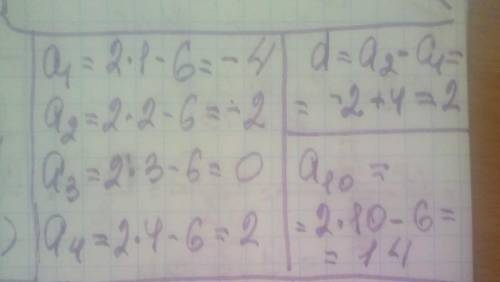 a₁ = 2·1-6 = -4
a₂ = 2·2-6 = -2
a₃ = 2·3-6 = 0
a₄ = 2·4-6 = 2
d = a₂-a₁=
= -2+4 = 2
a₁₀ =
= 2·10-6 =
= 14